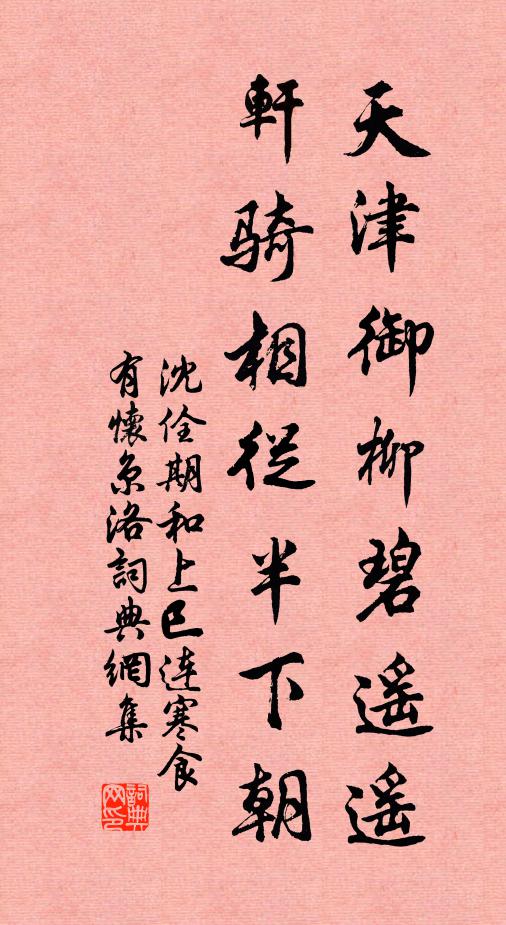 天津御柳碧遥遥
軒骑相從半下朝
沈佺期和上巳连寒食
有懷京洛詞典網集
詞典网印